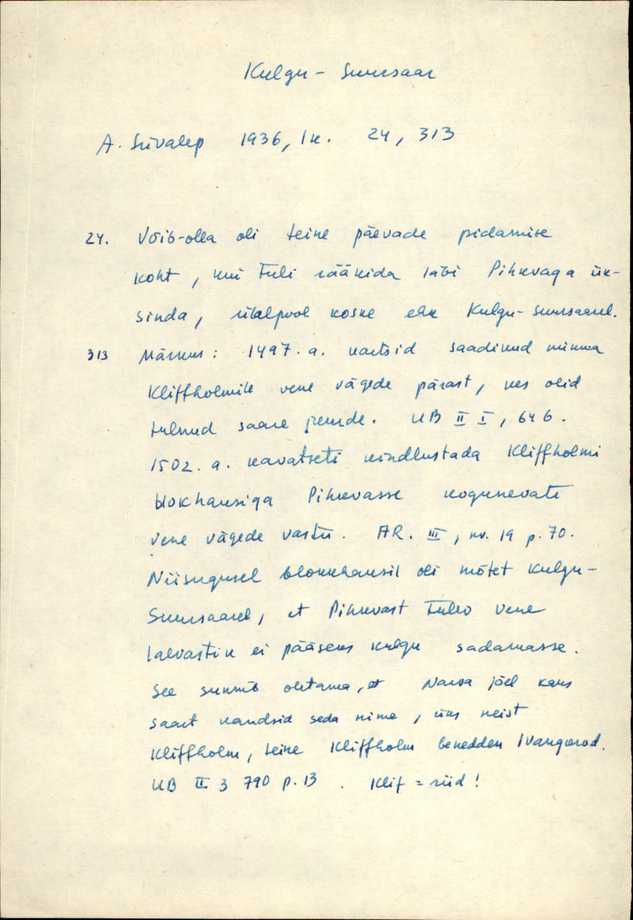 Kulgu - Suursaar
A. Süvalep 1936, lk. 24, 313
24. Võib-olla oli teine päevade pidamise
koht, kui tuli rääkida läbi Pihkvaga ük-
sinda, ülalpool koske ehk Kulgu-Suursaarel.
313 Märkus: 1497. a. kaitsid saadikud minna
Kliffholmile vene vägede pärast, kes olid
tulnud saare juurde. UB II I, 646.
1502. a. kavatseti kindlustada Kliffholmi
blokhausiga Pihkvasse kogunevate
vene vägede vastu. AR. III, nr. 19 p. 70.
Niisugusel blokkhausil oli mõtet Kulgu-
Suursaarel, et Pihkvast tulev vene
laevastik ei pääseks Kulgu sadamasse.
See sunnib oletama, et Narva jõel kaks
saart kandsid seda nime, üks neist
Kliffholm, teine Kliffholm benedden Ivangorod.
UB II 3 790 p. 13. Klif =